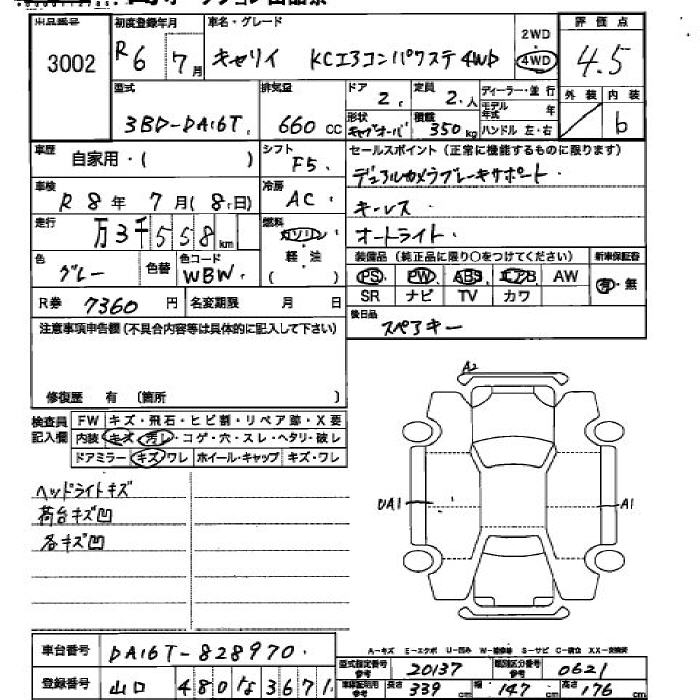 出品番号
3002
初度登録年月
R6 7月
車名・グレード
キャリイ KCエアコンパワステ4WD
2WD
4WD
評価点
4.5
型式
3BD-DA16T
排気量
660 CC
ドア
2
定員
2.人
ディーラー・並行
モデル年式 年
ハンドル 左・右
形状
キャブオーバ
積載
350kg
外装
内装
b
車歴
自家用・( )
シフト
F5.
セールスポイント(正常に機能するものに限ります)
デュアルカメラブレーキサポート・
キーレス・
オートライト・
車検
R 8年 7月(8・日)
冷房
AC
走行
万3千558km
燃料
ガソリン
軽・油
( )
色
グレー
色替
色コード
WBW
装備品(純正品に限り○をつけてください)
新車保証書
PS PW ABS エアB AW
有・無
SR ナビ TV カワ
R券 7360円
名変期限 月 日
後日品
スペアキー
注意事項申告欄(不具合内容等は具体的に記入して下さい)
修復歴 有 〔箇所 〕
検査員記入欄
FW キズ・飛石・ヒビ割・リペア跡・X要
内装 キズ・汚レ・コゲ・穴・スレ・ヘタリ・破レ
ドアミラー キズ・ワレ ホイール・キャップ キズ・ワレ
ヘッドライトキズ
荷台キズ凹
各キズ凹
A2
UA1
A1
A-キズ E-エクボ U-凹み W-補修跡 S-サビ C-腐食 XX-交換済
車台番号
DA16T-828970
型式指定番号
参考
20137
類別区分番号
参考
0621
登録番号
山口 480 な 3671
車検証記載用
参考
長さ 339cm 幅 147cm 高さ 176cm